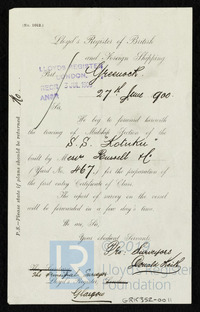 (No. 1012.)
Lloyd's Register of British
and Foreign Shipping.
LLOYDS REGISTER
LONDON
REC'D 2 JUL 1900
ANSD
Port Greenock
27th June 1900.
Sir,
We beg to forward herewith
the tracing of Midship Section of the
S.S. "Kotuku"
built by Messrs Russell & Co.
(Yard No. 467.) for the preparation of
the first entry Certificate of Class.
The report of survey on this vessel
will be forwarded in a few day's time.
We are, Sir,
Your obedient Servants,
Surveyors
The Principal Surveyor
Lloyd's Register
Glasgow
P.S.—Please state if plans should be returned
No
2019
Lloyd's Register
Foundation
GRK352-0011